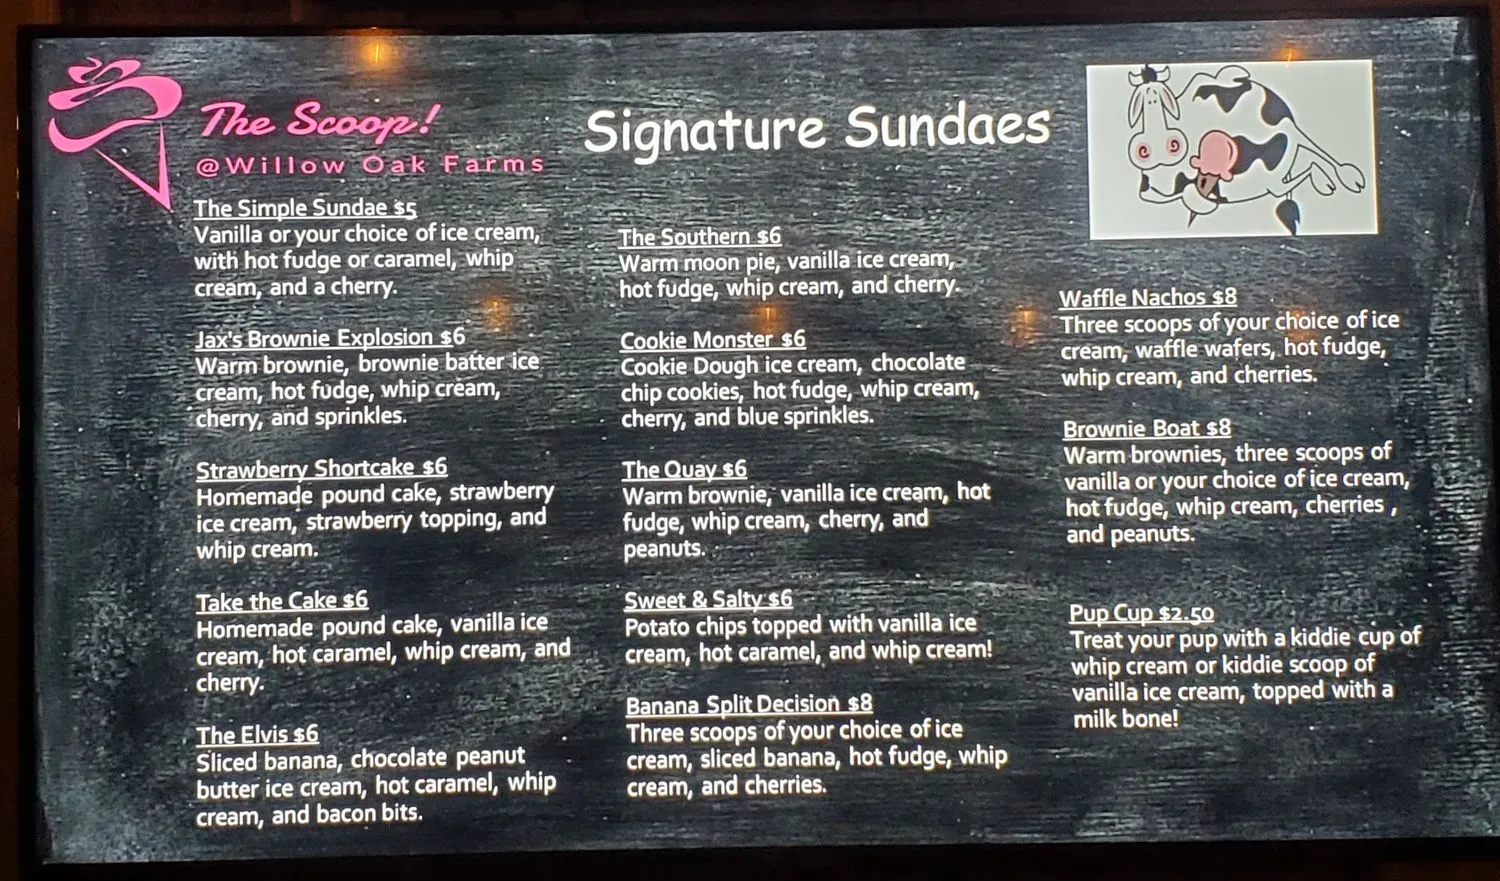 The Scoop!
@Willow Oak Farms
Signature Sundaes
The Simple Sundae $5
Vanilla or your choice of ice cream,
with hot fudge or caramel, whip
cream, and a cherry.
Jax's Brownie Explosion $6
Warm brownie, brownie batter ice
cream, hot fudge, whip cream,
cherry, and sprinkles.
Strawberry Shortcake $6
Homemade pound cake, strawberry
ice cream, strawberry topping, and
whip cream.
Take the Cake $6
Homemade pound cake, vanilla ice
cream, hot caramel, whip cream, and
cherry.
The Elvis $6
Sliced banana, chocolate peanut
butter ice cream, hot caramel, whip
cream, and bacon bits.
The Southern $6
Warm moon pie, vanilla ice cream,
hot fudge, whip cream, and cherry.
Cookie Monster $6
Cookie Dough ice cream, chocolate
chip cookies, hot fudge, whip cream,
cherry, and blue sprinkles.
The Quay $6
Warm brownie, vanilla ice cream, hot
fudge, whip cream, cherry, and
peanuts.
Sweet & Salty $6
Potato chips topped with vanilla ice
cream, hot caramel, and whip cream!
Banana Split Decision $8
Three scoops of your choice of ice
cream, sliced banana, hot fudge, whip
cream, and cherries.
Waffle Nachos $8
Three scoops of your choice of ice
cream, waffle wafers, hot fudge,
whip cream, and cherries.
Brownie Boat $8
Warm brownies, three scoops of
vanilla or your choice of ice cream,
hot fudge, whip cream, cherries ,
and peanuts.
Pup Cup $2.50
Treat your pup with a kiddie cup of
whip cream or kiddie scoop of
vanilla ice cream, topped with a
milk bone!